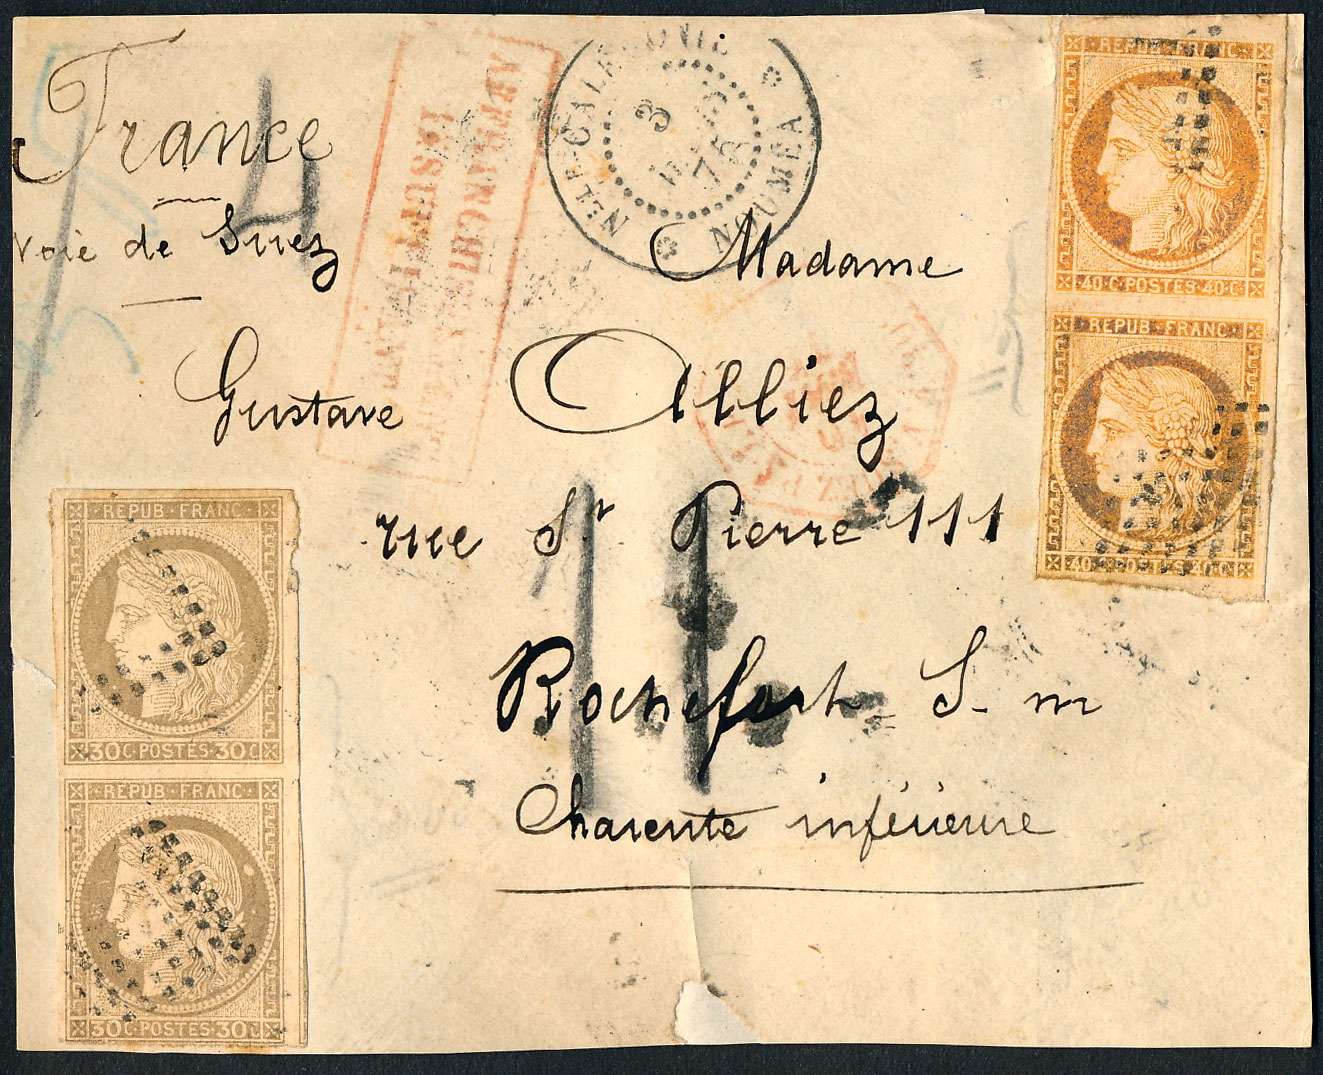 France
Voie de Suez
4
AFFRANCHISSEMENT
INSUFFISANT
Nlle CALEDONIE
3
75
NOUMEA
Madame
Gustave Alliez
rue St Pierre 111
Rochefort S. m
Charente inférieure
11
REPUB·FRANC
40·C·POSTES·40·C
REPUB·FRANC
40·C·POSTES·40·C
REPUB·FRANC
30C·POSTES·30C
REPUB·FRANC
30C·POSTES·30C